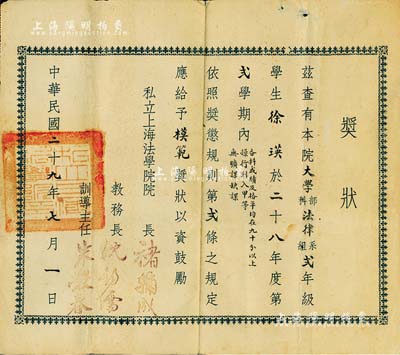 上海陽明拍賣
獎狀
茲查有本院大學部法律系弍年級
專科組
學生徐瑛於二十八年度第
弍學期內
各科成績及格平均在九十分以上
操行列入甲等
無曠課缺課
依照獎懲規則第弍條之規定
應給予模範獎狀以資鼓勵
私立上海法學院院長褚輔成
教務長沈
訓導主任
中華民國二十九年七月一日